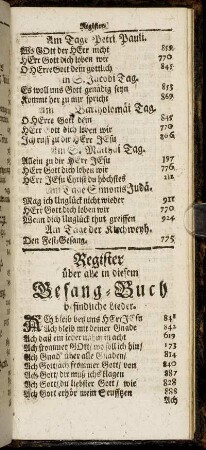 Register.
Am Tage Petri Pauli.
Wo GOtt der HErr nicht 852.
HErr Gott dich loben wir 770.
O HErre Gott dein göttlich 845.
in S. Jacobi Tag.
Es woll uns Gott genädig seyn 853
Kommt her zu mir spricht 869.
Am Bartholomäi Tag.
O HErre Gott dein 845.
HErr Gott dich loben wir 770.
Ich ruff zu dir HErr JEsu
Am S. Matthäi Tag.
Allein zu dir HErr JEsu 197
HErr Gott dich loben wir 776.
HErr JEsu Christ du höchstes 212
am Tage Simonis Judä.
Mag ich Unglück nicht wieder 911
HErr Gott dich loben wir 770.
Wenn dich Unglück thut greiffen 924
Am Tage der Kirchweyh.
Den Fest-Gesang. 775
Register
über alle in diesem
Gesang-Buch
befindliche Lieder.
ACh bleib bey uns HErr JEsu 848
Ach bleib mit deiner Gnade 842
Ach daß ein jeder nähm in acht 619
Ach frommer GOtt/ wo soll ich hin/ 173
Ach Gnad' über alle Gnaden/ 814
Ach Gott/ach frommer Gott/ von 840
Ach Gott/ dir muß ichs klagen 887
Ach Gott/ du liebster Gott/ wie 828
Ach Gott erhör mein Seuffzen 888
Ach